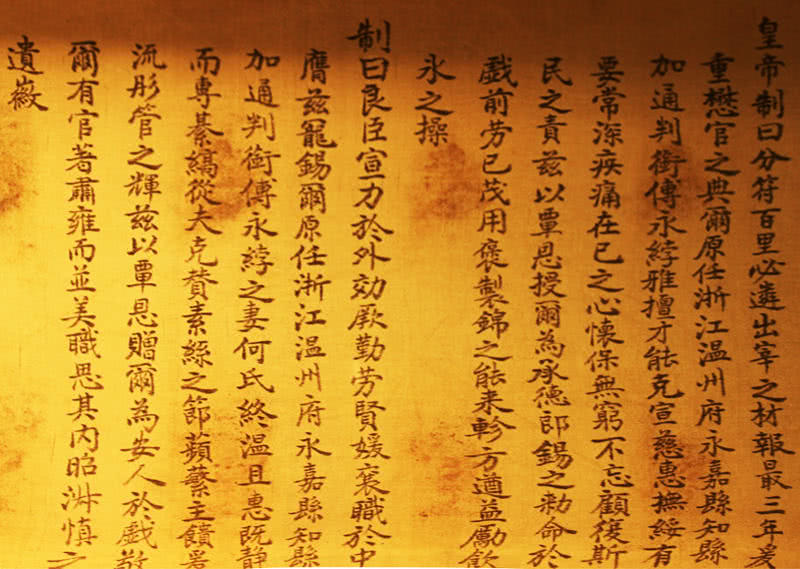 皇帝制曰分符百里必遴出宰之材報最三年爰
重懋官之典爾原任浙江温州府永嘉縣知縣
加通判銜傅永綍雅擅才能克宣慈惠撫綏有
要常深疾痛在已之心懷保無窮不忘顧復斯
民之責兹以覃恩授爾為承德郎錫之勅命於
戲前勞已茂用褒製錦之能来軫方遒益勵飲
冰之操
制曰良臣宣力於外効厥勤勞賢媛襄職於中
膺兹寵錫爾原任浙江温州府永嘉縣知縣
加通判銜傅永綍之妻何氏終温且惠既静
而專綦縞從夫克賛素絲之節蘋蘩主饋
流彤管之輝兹以覃恩贈爾為安人於戲敬
爾有官著肅雍而並美職思其内昭淋慎之
遺徽